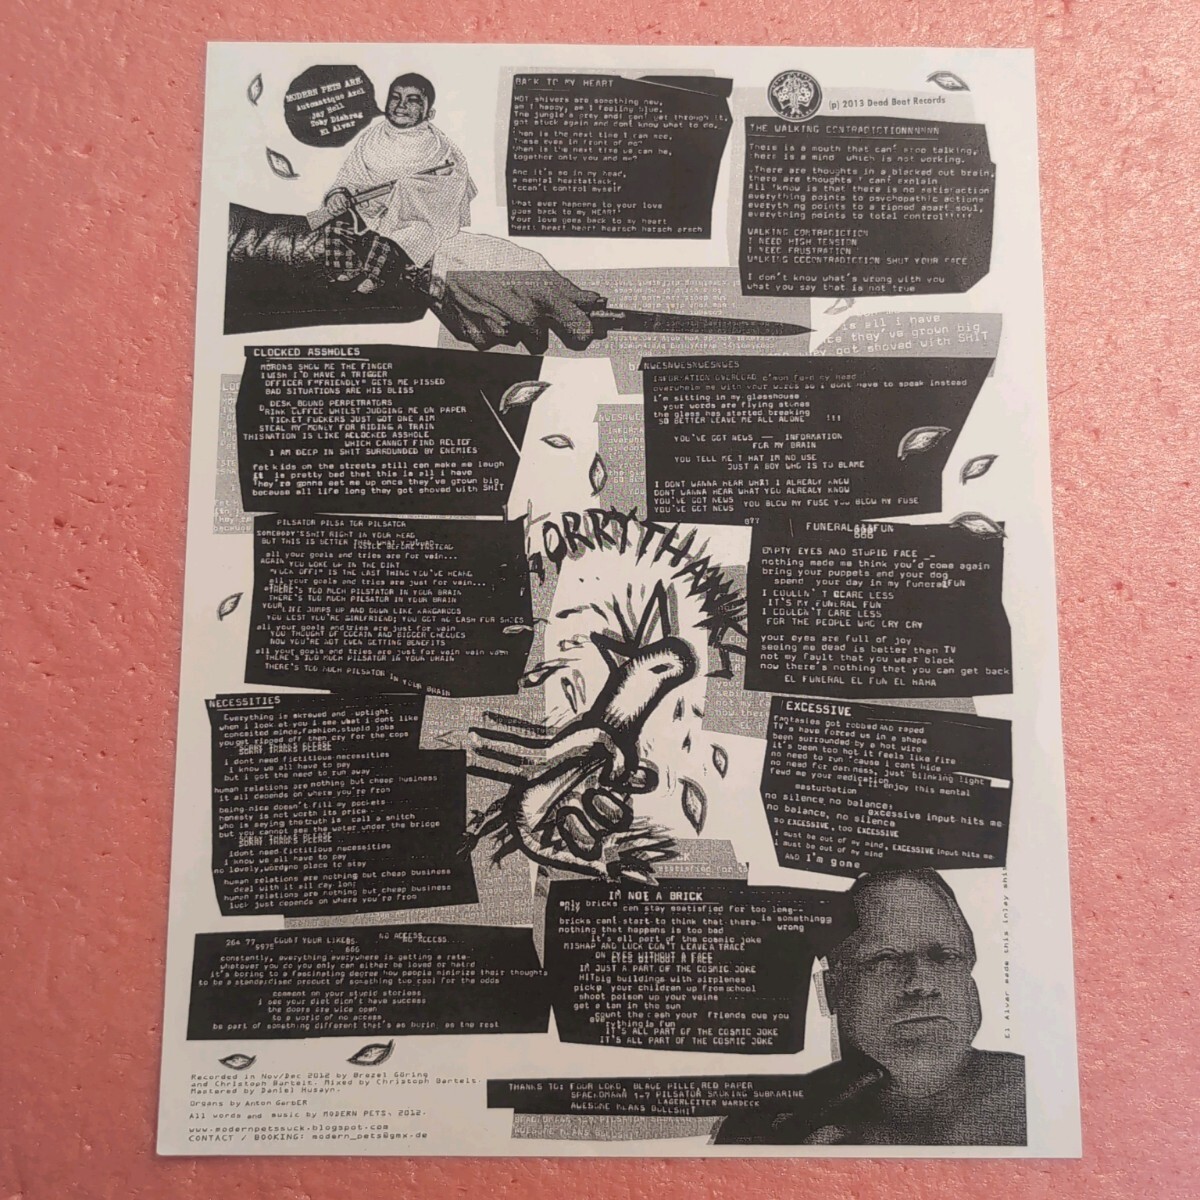 MODERN PETS ARE
Automatique Axel
Jay Hell
Toby Dishrag
El Alvar
BACK TO MY HEART
HOT shivers are something new,
am I happy, am I feeling blue.
got stuck again and dont know what to do.
When is the next time I can see,
these eyes in front of me?
When is the next time we can be,
together only you and me?
And it's so in my head,
a mental heartattack,
control myself
What ever happens to your love
goes back to my HEART!
Your love goes back to my heart
(p) 2013 Dead Beat Records
THE WALKING CONTRADICTIONNNNNN
There is a mouth that can' stop talking,
there is a mind which is not working.
There are thoughts in a blacked out brain,
there are thoughts ' can' explain
All 'know is that there is no satisfaction
everything points to psychopathic actions
everyth ng points to a ripped apart soul,
everything points to total control!!!!!
WALKING CONTRADICTION
I NEED HIGH TENSION
I NEED FRUSTRATION
SHUT YOUR FACE
I don't know what's wrong with you
what you say that is not true
CLOCKED ASSHOLES
MORONS SHOW ME THE FINGER
I WISH I'D HAVE A TRIGGER
OFFICER F"FRIENDLY" GETS ME PISSED
BAD SITUATIONS ARE HIS BLISS
DESK BOUND PERPETRATORS
DRINK COFFEE WHILST JUDGING ME ON PAPER
TICKET FUCKERS JUST GOT ONE AIM
STEAL MY MONLY FOR RIDING A TRAIN
THISNATION IS LIKE ACLOCKED ASSHOLE
WHICH CANNOT FIND RELIEF
I AM DEEP IN SHIT SURROUNDED BY ENEMIES
fat kids on the streets still can make me laugh
is pretty bad that this is all i have
they're gonna eat me up once they've grown big
because all life long they got shoved with SHIT
NWESNWESNWESNWES
INFORMATION OVERLOAD
overwhelm me with your words so i dont have to speak instead
i'm sitting in my glasshouse
your words are flying stones
the glass has started breaking
SO BETTER LEAVE ME ALL ALONE !!!
YOU'VE GOT NEWS — INFORMATION
FOR MY BRAIN
YOU TELL ME T HAT IM NO USE
JUST A BOY WHO IS TO BLAME
I DONT WANNA HEAR WHAT I ALREADY KNOW
DONT WANNA HEAR WHAT YOU ALREADY KNOW
YOU'VE GOT NEWS YOU BLOW MY FUSE YOU BLOW MY FUSE
YOU'VE GOT NEWS
PILSATOR PILSA TOR PILSATOR
SOMEBODY'SSHIT RIGHT IN YOUR HEAD
all your goals and tries are for vain...
AGAIN YOU WOKE UP IN THE DIRT
"FUCK OFF!" IS THE LAST THING YOU'VE HEARD
all your goals and tries are just for vain...
THERE'S TOO MUCH PILSTATOR IN YOUR BRAIN
THERE'S TOO MUCH PILSATOR IN YOUR BRAIN
YOUR LIFE JUMPS UP AND DOWN LIKE KANGAROOS
YOU LOST YOU'RE GIRLFRIEND; YOU GOT NO CASH FOR SHOES
all your goals andtries are just for vain
YOU THOUGHT OF COCAIN AND BIGGER CHEQUES
NOW YOU'RE NOT EVEN GETTING BENEFITS
all your goals and tries are just for vain vain vain
THERE'S TOO MUCH PILSATOR IN YOUR BRAIN
THERE'S TOO MUCH PILSATOR IN YOUR BRAIN
SORRYTHANKS
FUNERAL FUN
666
EMPTY EYES AND STUPID FACE
nothing made me think you'd come again
bring your puppets and your dog
spend your day in my funeralFUN
I COULDN'T SCARE LESS
IT'S MY FUNERAL FUN
I COULDN'T CARE LESS
FOR THE PEOPLE WHO CRY CRY
your eyes are full of joy
seeing me dead is better than TV
not my fault that you wear black
now there's nothing that you can get back
EL FUNERAL EL FUN EL HAHA
NECESSITIES
Everything is skrewed and uptight
when i look at you i see what i dont like
conceited minds,fashion,stupid jobs
youget ripped off then cry for the cops
SORRY THANKS PLEASE
i dont need fictitious necessities
I know we all have to pay
but i got the need to run away
human relations are nothing but cheap business
it all depends on where you're from
being nice doesn't fill my pockets
honesty is not worth its price
who is saying thetruth is call a snitch
but you cannot see the water under the bridge
SORRY THANKS PLEASE
Idont need fictitious necessities
i know we all have to pay
no lovely wordsno place to stay
human relations are nothing but cheap business
deal with it all day long
human relations are nothing but cheap business
luck just depends on where you're from
EXCESSIVE
fantasies got robbed AND raped
TV's have forced us in a shape
been surrounded by a hot wire
it's been too hot it feels like fire
no need to run 'cause i cant hide
no need for darkness, just blinking light
feed me your medication
i'll enjoy this mental
masturbation
no silence no balance,
excessive input hits me
no balance, no silence
so EXCESSIVE, too EXCESSIVE
i must be out of my mind, EXCESSIVE input hits me
i must be out of my mind
AND I'm gone
IM NOT A BRICK
only bricks can stay satisfied for too long--
bricks cant start to think that there is somethingg
wrong
nothing that happens is too bad
it's all part of the cosmic joke
MISHAP AND LUCK DON'T LEAVE A TRACE
ON EYES WITHOUT A FACE
IM JUST A PART OF THE COSMIC JOKE
HITbig buildings with airplanes
pickp your children up fromschool
shoot poison up your veins
get a tan in the sun
count the cash your friends owe you
everything is fun
IT'S ALL PART OF THE COSMIC JOKE
IT'S ALL PART OF THE COSMIC JOKE
264 77 COUNT YOUR LIKES. NO ACCESS
9975 666 NO ACCESS
constantly, everything everywhere is getting a rate
whatever you do you only can either be loved or hated
it's boring to a fascinating degree how people minimize their thoughts
to be a standardised product of something too cool for the odds
comment on your stupid stories
i see your diet didn't have success
the doors are wide open
to a world of no access
be part of something different that's as boring as the rest
El Alvar made this inlay shit
Recorded in Nov/Dec 2012 by Brezel Göring
and Christoph Bartelt. Mixed by Christoph Bartelt.
Mastered by Daniel Husayn.
Organs by Anton GarbER
All words and music by MODERN PETS, 2012.
www.modernpetssuck.blogspot.com
CONTACT / BOOKING: modern_pets@gmx.de
THANKS TO: FOUR LOKO, BLAUE PILLE RED PAPER
SPACKOMANN 1-7 PILSATOR SMOKING SUBMARINE
LAGERLEITER WARDECK
AWESOME KLAUS BULLSHIT